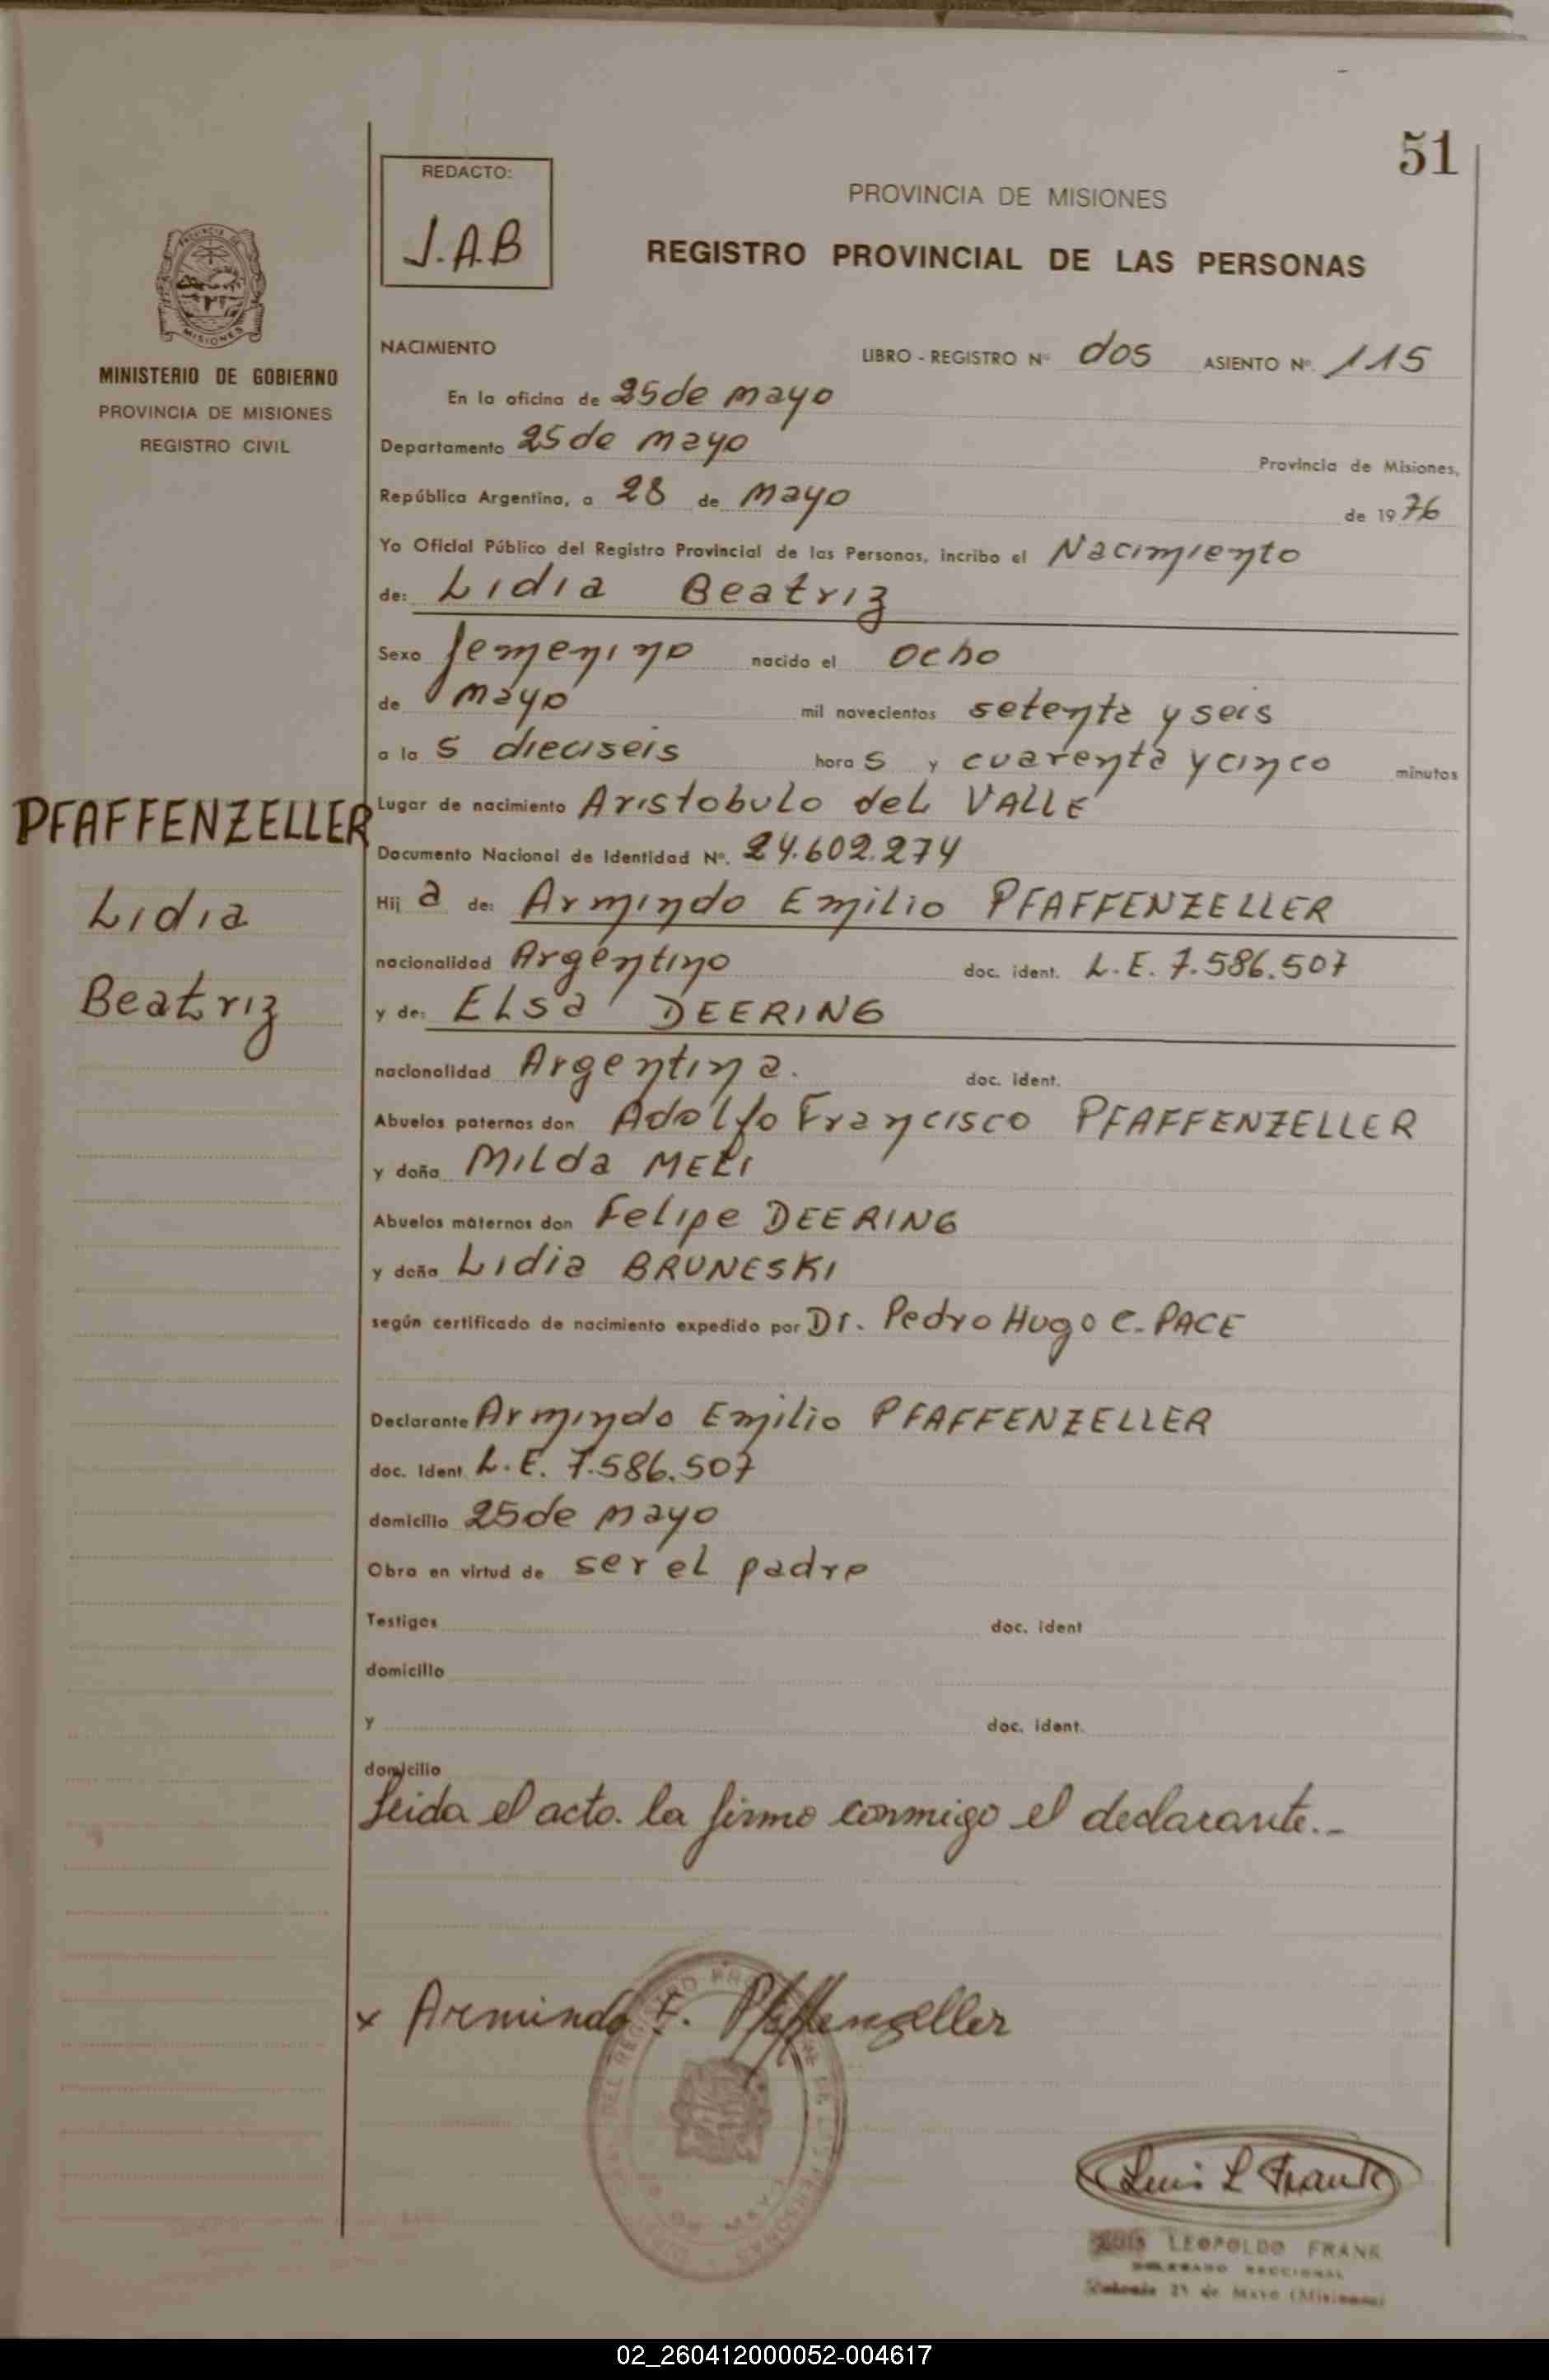 51
REDACTO:
J.A.B
PROVINCIA DE MISIONES
REGISTRO PROVINCIAL DE LAS PERSONAS
MISIONES
MINISTERIO DE GOBIERNO
PROVINCIA DE MISIONES
REGISTRO CIVIL
NACIMIENTO LIBRO - REGISTRO Nº dos ASIENTO Nº. 115
En la oficina de 25 de mayo
Departamento 25 de mayo Provincia de Misiones,
República Argentina, a 28 de mayo de 1976
Yo Oficial Público del Registro Provincial de las Personas, incribo el Nacimiento
de: Lidia Beatriz
Sexo femenino nacido el ocho
de mayo mil novecientos setenta y seis
a la s dieciseis hora s y cuarenta y cinco minutos
Lugar de nacimiento Aristobulo del VALLE
PFAFFENZELLER
Lidia
Beatriz
Documento Nacional de Identidad Nº. 24.602.274
Hij a de: Armindo Emilio PFAFFENZELLER
nacionalidad Argentino doc. ident. L.E. 7.586.507
y de: ELSa DEERING
nacionalidad Argentina. doc. ident.
Abuelos paternos don Adolfo Francisco PFAFFENZELLER
y doña Milda
Abuelos maternos don Felipe DEERING
y doña Lidia BRUNESKI
según certificado de nacimiento expedido por Dr. Pedro Hugo C. PACE
Declarante Armindo Emilio PFAFFENZELLER
doc. Ident. L.E. 7.586.507
domicilio 25 de mayo
Obra en virtud de ser el padre
Testigos doc. ident
domicilio
y doc. ident.
domicilio
Leida el acto. la firmo conmigo el declarante.-
x Armindo E. Pfaffenzeller
Luis L Frank
LUIS LEOPOLDO FRANK
DELEGADO SECCIONAL
25 de Mayo (Misiones)
02_260412000052-004617